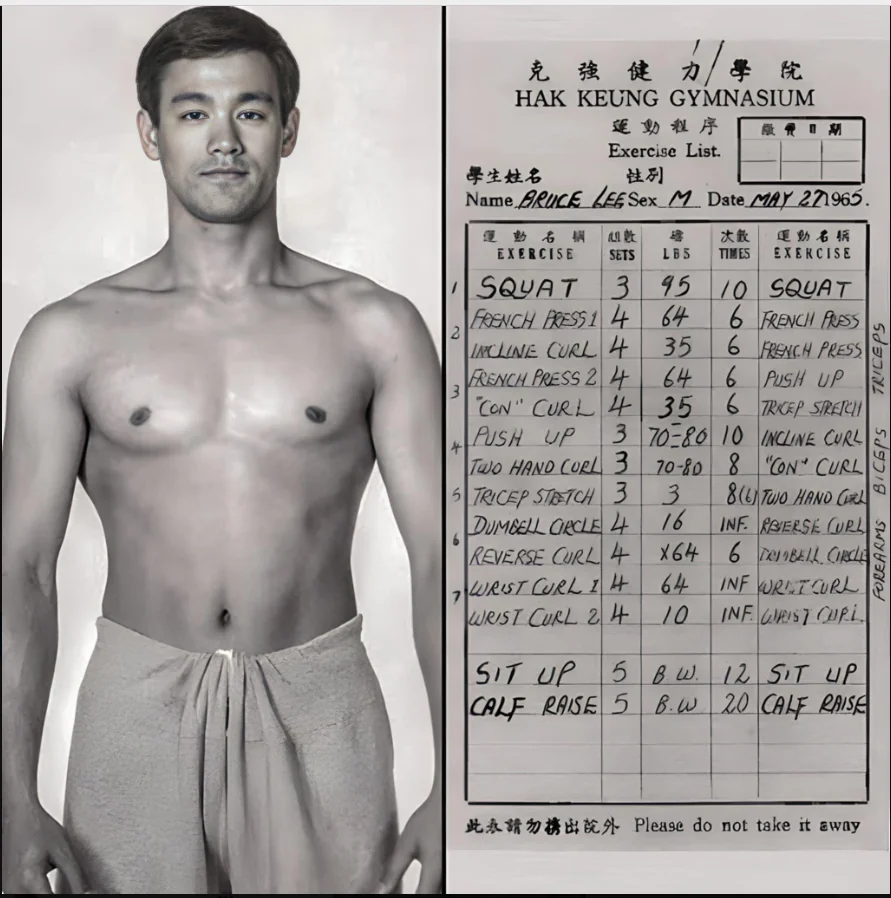 克強健力學院
HAK KEUNG GYMNASIUM
運動程序
Exercise List.
學生姓名 性別
Name BRUCE LEE Sex M Date MAY 27 1965.
運動名稱 次數 運動名稱
EXERCISE SETS LBS TIMES EXERCISE
1 SQUAT 3 95 10 SQUAT
FRENCH PRESS 1 4 64 6 FRENCH PRESS
2 INCLINE CURL 4 35 6 FRENCH PRESS
FRENCH PRESS 2 4 64 6 PUSH UP
3 "CON" CURL 4 35 6 TRICEP STRETCH
PUSH UP 3 70-80 10 INCLINE CURL
4 TWO HAND CURL 3 70-80 8 "CON" CURL
5 TRICEP STRETCH 3 3 8(6) TWO HAND CURL
DUMBELL CIRCLE 4 16 INF. REVERSE CURL
6 REVERSE CURL 4 x64 6 DUMBELL CIRCLE
7 WRIST CURL 1 4 64 INF WRIST CURL
WRIST CURL 2 4 10 INF. WRIST CURL
SIT UP 5 B.W. 12 SIT UP
CALF RAISE 5 B.W 20 CALF RAISE
TRICEPS
BICEPS
FOREARMS
請勿携出院外 Please do not take it away